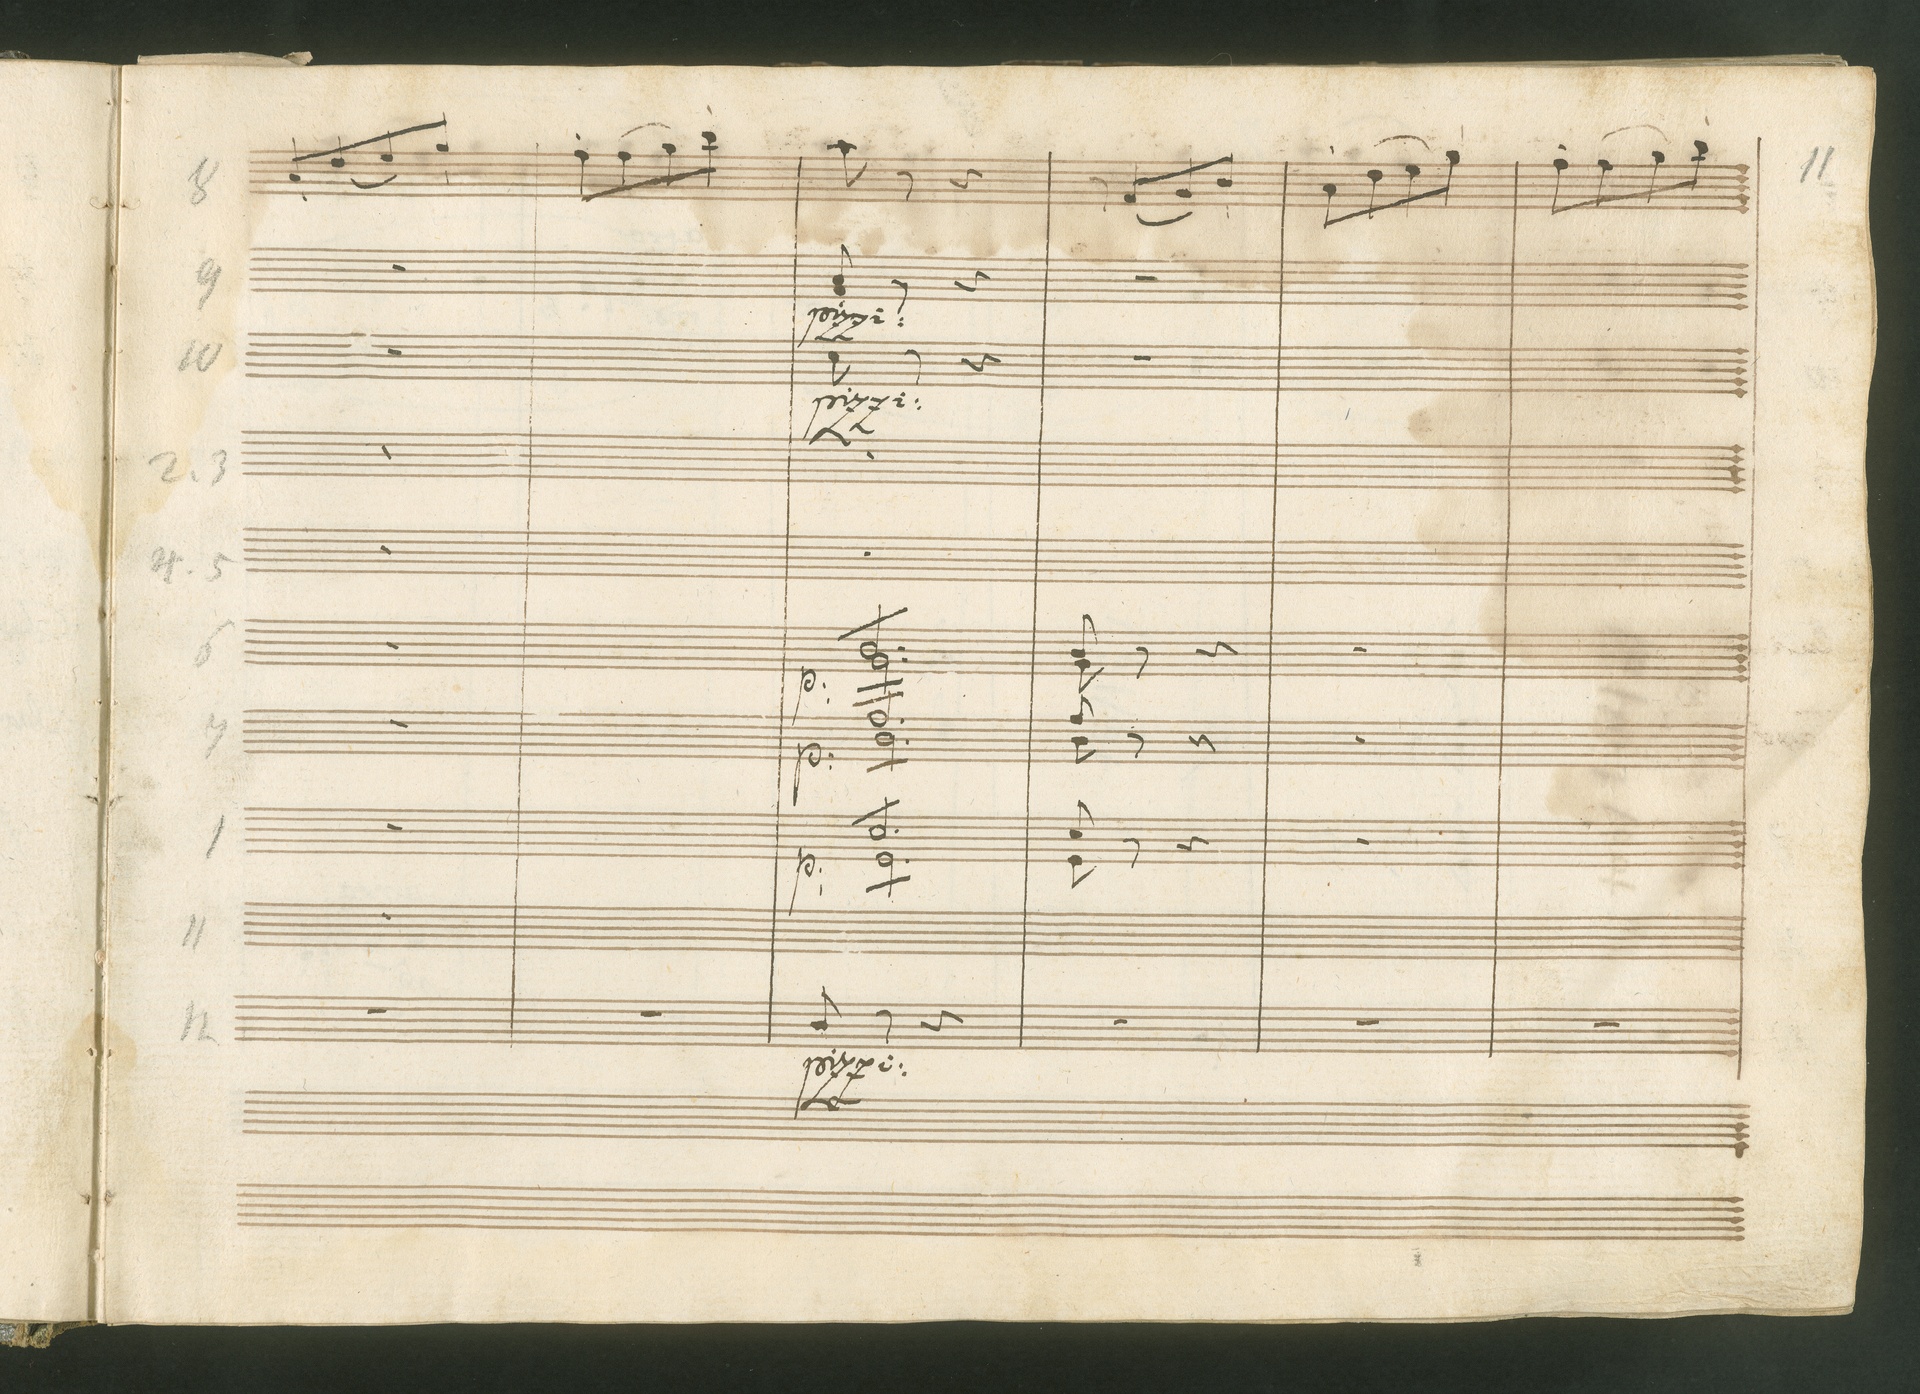 8 11
9
pizzic:
10
pizzic:
2.3
4.5
6
p:
7
p:
1
p:
11
12
pizzic: